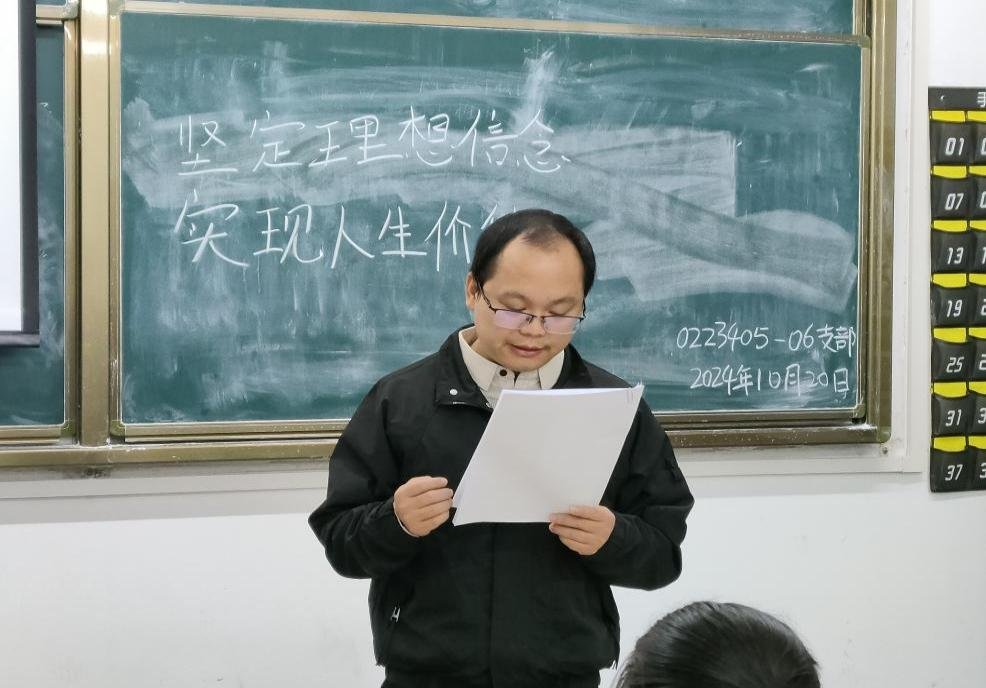 坚定理想信念
实现人生价
0223405-06支部
2024年10月20日
手
01
07
13
19
25
31
37